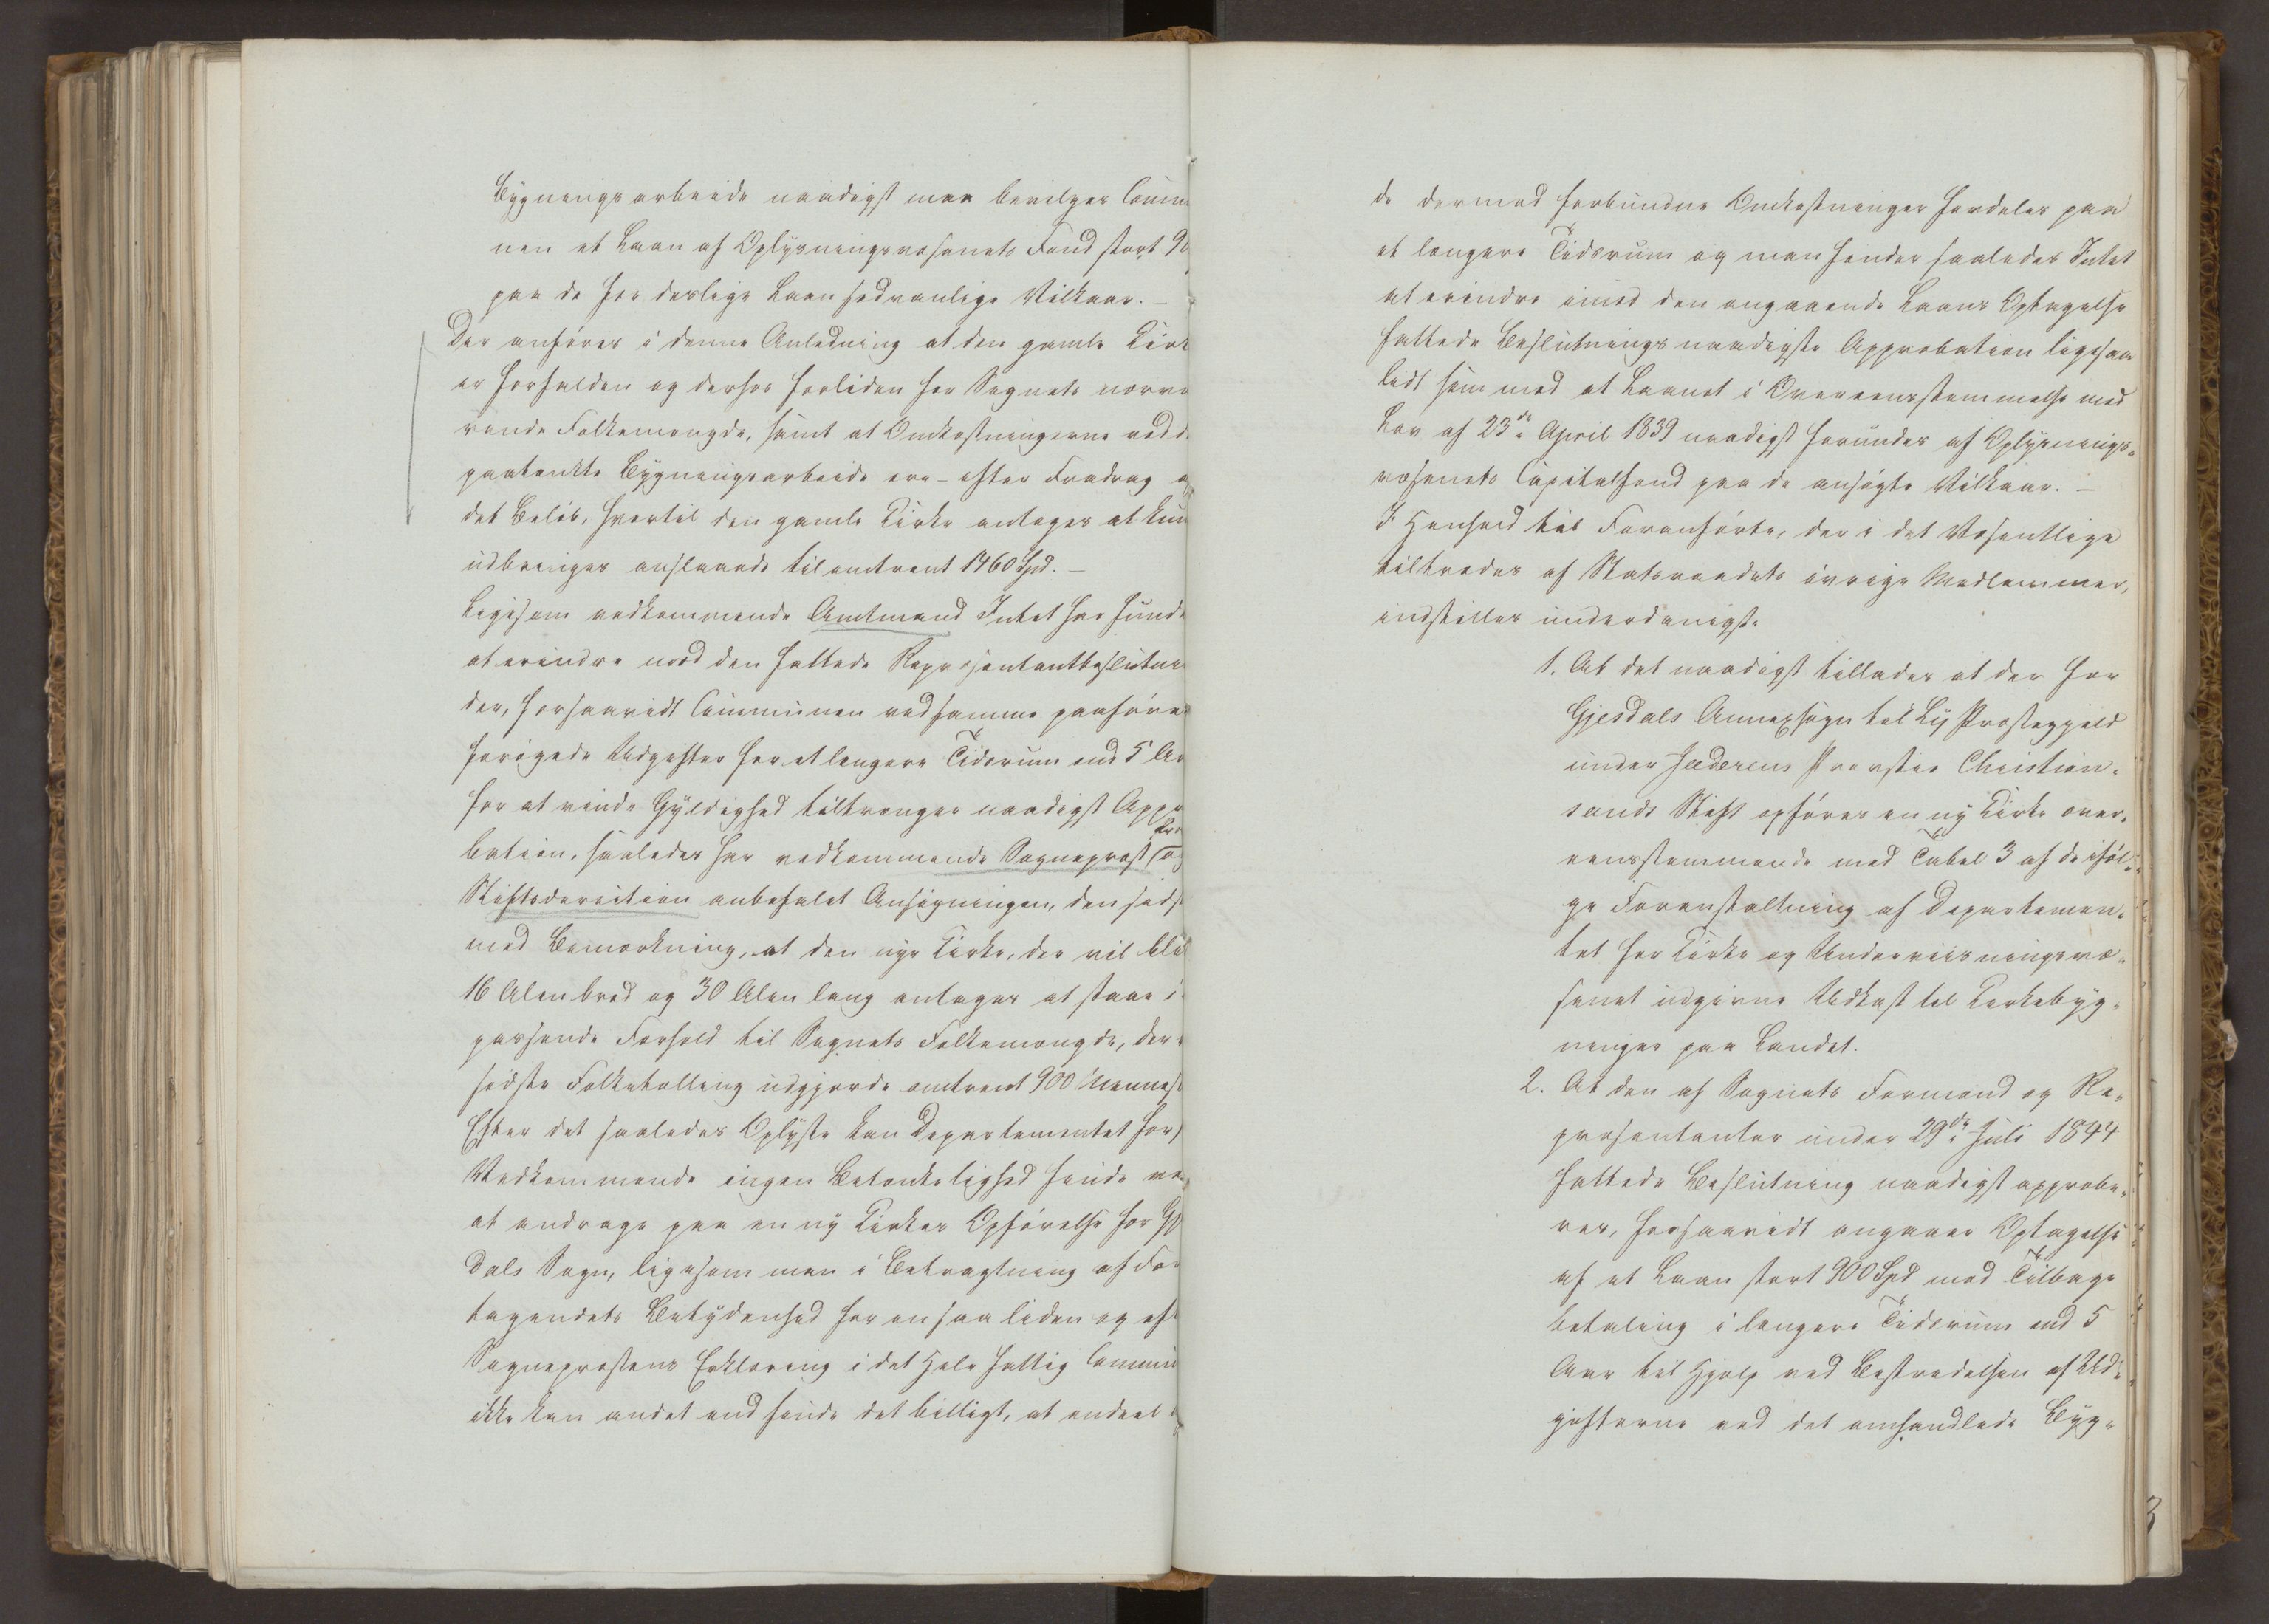 Bygningsarbeide naadigst maa bevilges Comm
nen et Laan af Oplysningsvæsenets Fond stort 90
paa de for deslige Laan sædvanlige Vilkaar. –
Der anføres i denne Anledning at den gamle Kirk
er forfalden og derhos forliden for Sognets nærvæ
rende Folkemængde, samt at Omkostningerne ved d
paatænkte Bygningsarbeide ere – efter Fradrag a
det Beløb, hvortil den gamle Kirke antages at kun
udbringes anslaaede til omtrent 1460 Spd. –
Ligesom vedkommende Amtmand Intet har fund
at erindre mod den fattede Repræsentantbeslutni
der, forsaavidt Communen ved samme paaføres
forøgede Udgifter for et længere Tidsrum end 5 Aa
for at vinde Gyldighed tiltrænger naadigst Appro
bation, saaledes har vedkommende Sogneprest og
Stiftsdirection anbefalet Ansøgningen, den sids
med Bemærkning, at den nye Kirke, der vil bli
16 Alen bred og 30 Alen lang antages at staae i
passende Forhold til Sognets Folkemængde, der
sidste Folketælling udgjorde omtrent 900 Mennesk
Efter det saaledes Oplyste kan Departementet for
Vedkommende ingen Betænkelighed finde ve
at andrage paa en ny Kirkes Opførelse for Gj
dals Sogn, ligesom man i Betragtning af Fo
tagendets Betydenhed for en saa liden og eft
Sogneprestens Erklæring i det Hele fattig Commu
ikke kan andet end finde det billigt, at endeel
de dermed forbundne Omkostninger fordeles paa
et længere Tidsrum og man finder saaledes Intet
at erindre imod den angaaende Laans Optagelse
fattede Beslutnings naadigste Approbation ligesaa
lidt som mod at Laanet i Overeensstemmelse med
Lov af 23de April 1839 naadigst forundes af Oplysnings-
væsenets Capitalfond paa de ansøgte Vilkaar. –
I Henhold til Foranførte, der i det Væsentlige
tiltrædes af Statsraadets øvrige Medlemmer,
indstilles underdanigst:
1. At det naadigst tillades at der for
Gjesdals Annexsogn til Ly Præstegjeld
under Jæderens Provstie Christian-
sands Stift opføres en ny Kirke over-
eensstemmende med Tabel 3 af de iføl-
ge Foranstaltning af Departemen-
tet for Kirke og Underviisningsvæ-
senet udgivne Udkast til Kirkebyg-
ninger paa Landet.
2. At den af Sognets Formænd og Re-
præsentanter under 29de Juli 1844
fattede Beslutning naadigst approbe-
res, forsaavidt angaaer Optagelse
af et Laan stort 900 Spd med Tilbage
betaling i længere Tidsrum end 5
Aar til Hjelp ved Bestridelsen af Ud-
gifterne ved det omhandlede Byg-